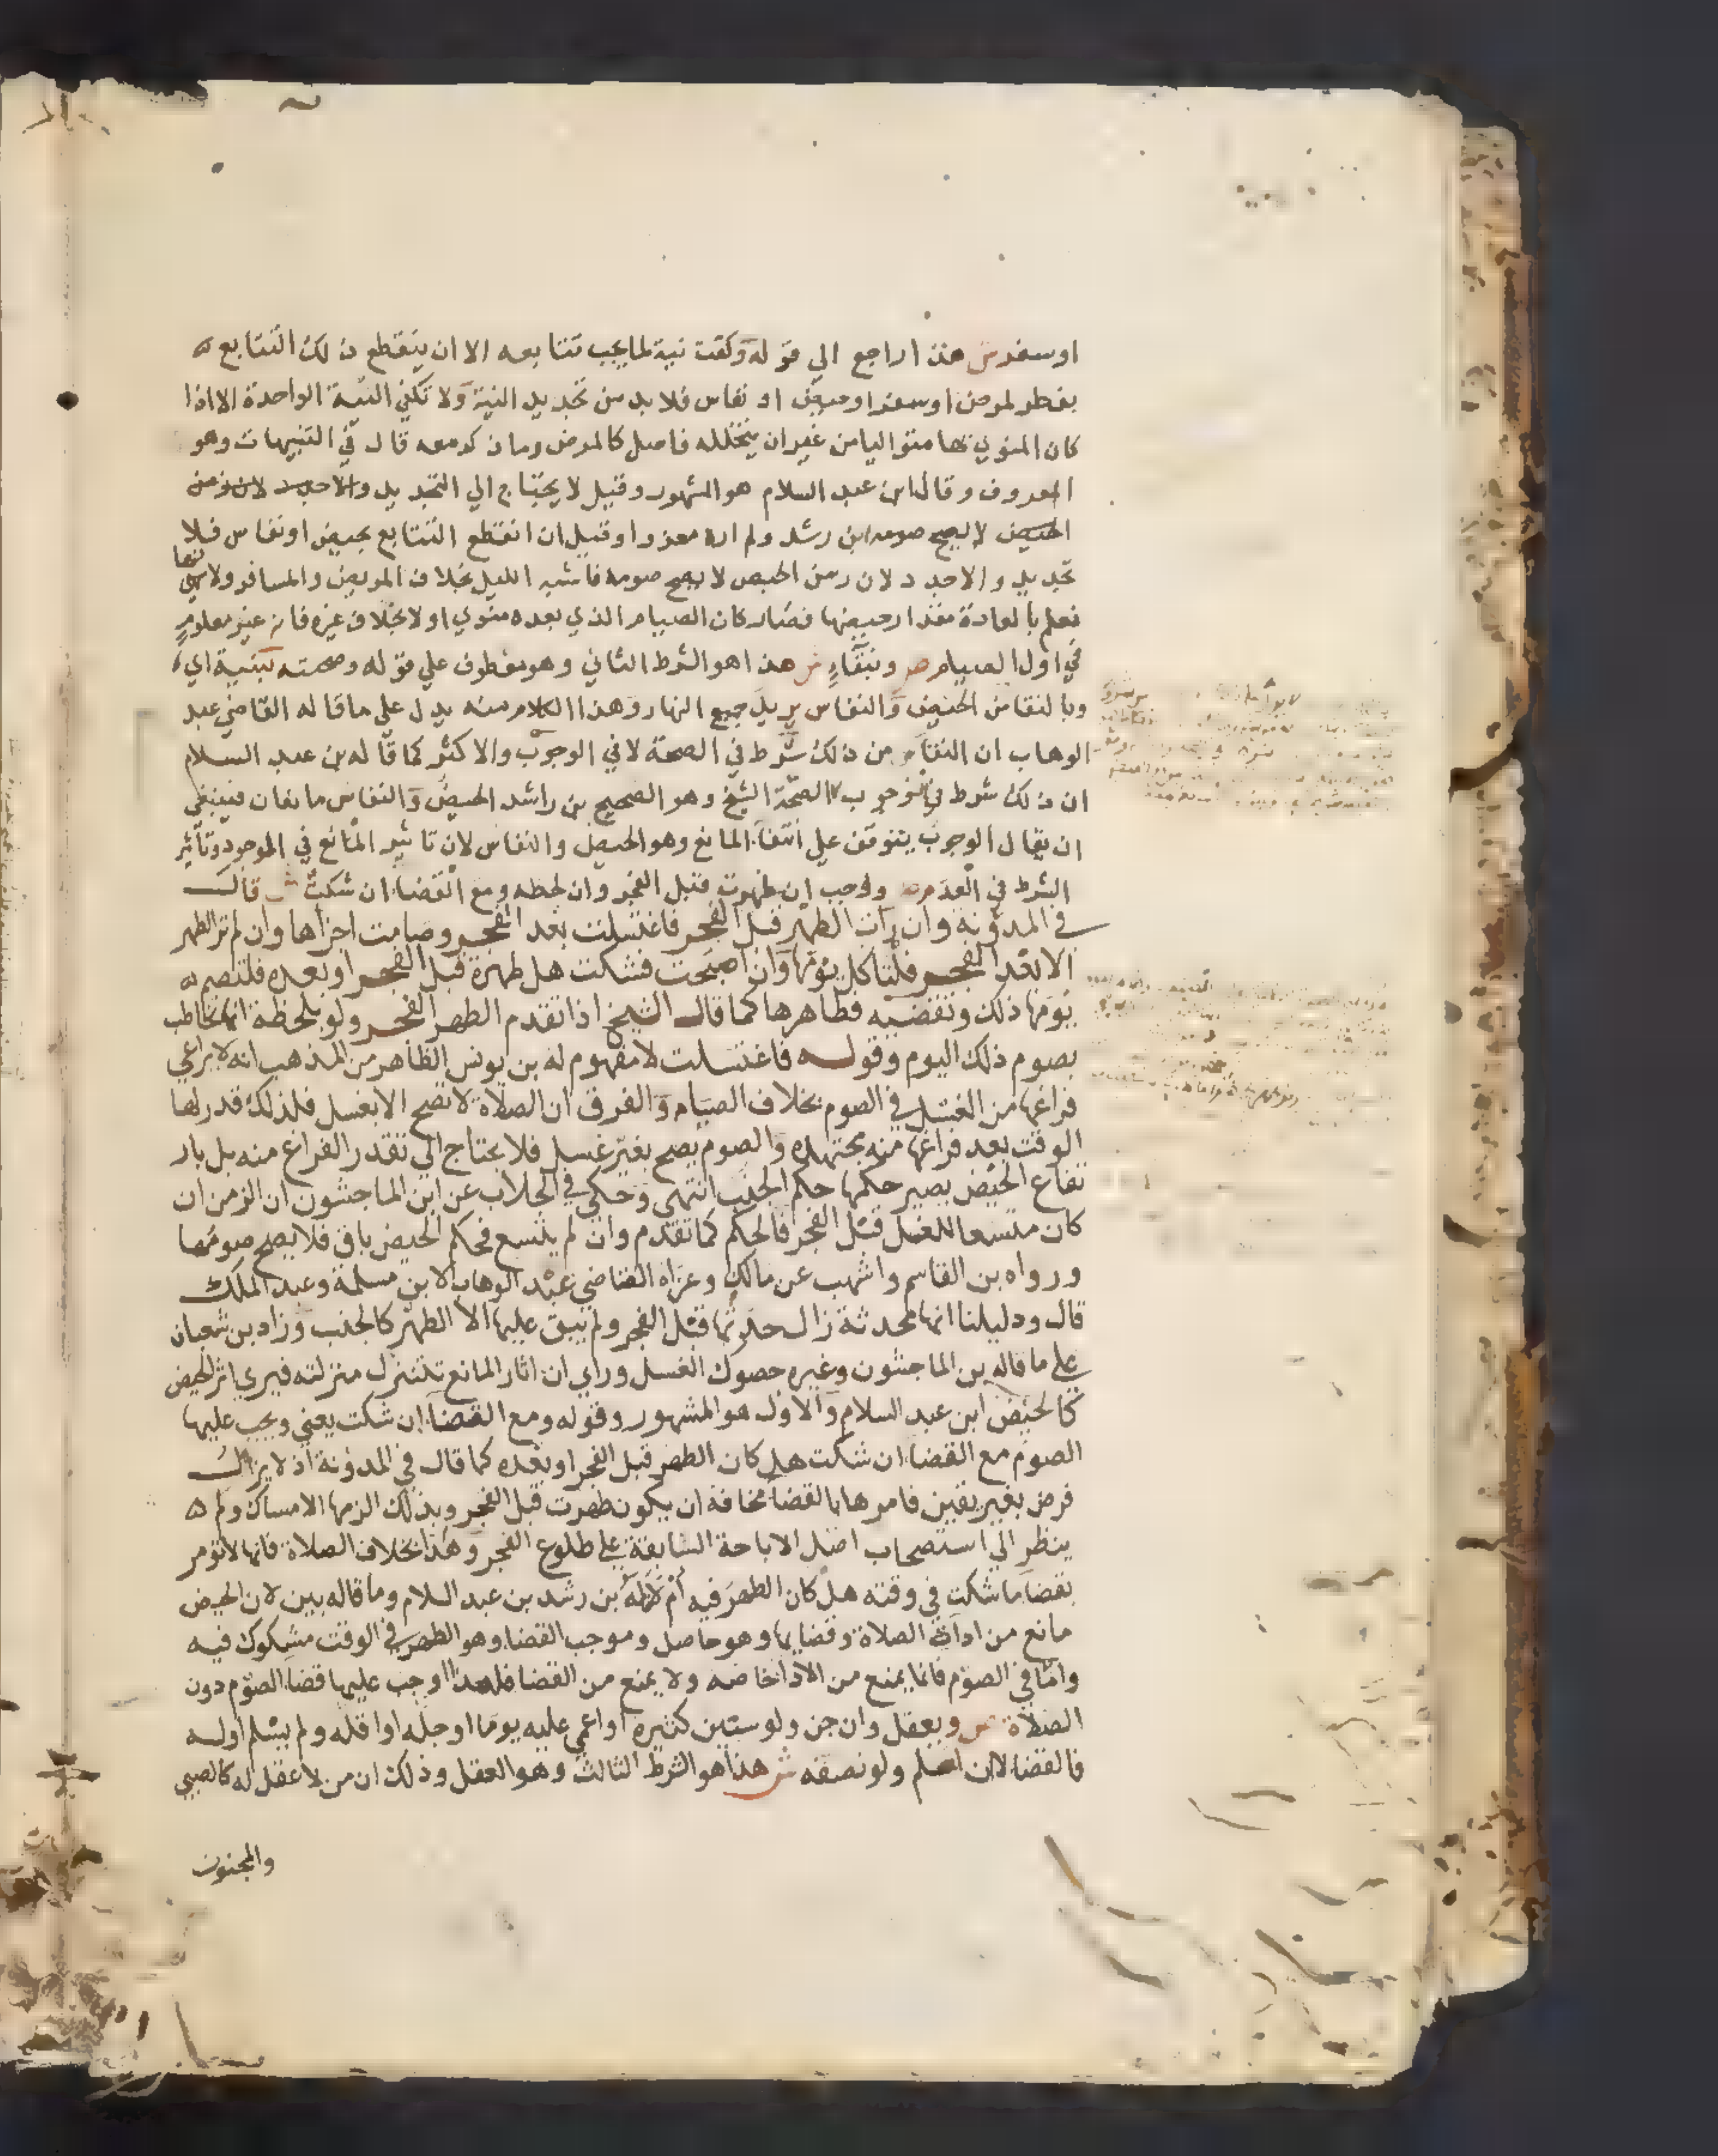 او سفر ش هذا راجع الي قوله وكفت نية لما يجب تتابعه الا ان ينقطع ذلك التتابع
بفطر لمرض او سفر او حيض او نفاس فلا بد من تجديد النية ولا تكفي النية الواحدة الا اذا
كان المنوي بها متواليا من غير ان يتخلله فاصل كالمرض وما ذكر معه قال في التنبيهات وهو
المعروف وقال ابن عبد السلام هو المشهور وقيل لا يحتاج الي التجديد والاحب لان زمن
الحيض لا يصح صومه ابن رشد ولم اره معزوا وقيل ان انقطع التتابع بحيض او نفاس فلا
تجديد والا جدد لان زمن الحيض لا يصح صومه فاشبه الليل بخلاف المريض والمسافر ولانها
تعلم بالعادة مقدار حيضها فصار كان الصيام الذي بعده منوي اولا بخلاف غيره فانه غير معلوم
في اول الصيام ص وبنقاء ش هذا هو الشرط الثاني وهو معطوف علي قوله وصحته بنية اي
وبالنقا من الحيض والنفاس يريد جميع النهار وهذا الكلام منه يدل علي ما قاله القاضي عبد
الوهاب ان النقاء من ذلك شرط في الصحة لا في الوجوب والاكثر كما قاله بن عبد السلام
ان ذلك شرط في الوجوب لا الصحة الشيخ وهو الصحيح بن راشد الحيض والنفاس مانعان فينبغي
ان يقال الوجوب يتوقف علي انتفا المانع وهو الحيض والنفاس لان تاثير المانع في الموجود وتأثير
الشرط في العدم ص ووجب ان طهرت قبل الفجر وان لحظه ومع القضا ان شكت ش قال
في المدونة وان رات الطهر قبل الفجر فاغتسلت بعد الفجر وصامت اجزاها وان لم تر الطهر
الا بعد الفجر فلتاكل يومها وان اصبحت فشكت هل طهرة قبل الفجر او بعده فلتصم
يومها ذلك وتقضيه فظاهرها كما قال الشيخ اذا تقدم الطهر الفجر ولو بلحظة انها تخاطب
بصوم ذلك اليوم وقوله فاغتسلت لا مفهوم له بن يونس الظاهر من المذهب انه لا يراعي
فراغها من الغسل في الصوم بخلاف الصيام والفرق ان الصلاة لا تصح الا بغسل فلذلك قدر لها
الوقت بعد فراغها منه مجتهدة والصوم يصح بغير غسل فلا يحتاج الي تقدر الفراغ منه بل بار
تفاع الحيض يصير حكمها حكم الجنب انتهى وحكي في الجلاب عن ابن الماجشون ان الزمن ان
كان متسعا للغسل قبل الفجر فالحكم كما تقدم وان لم يتسع فحكم الحيض باق فلا يصح صومها
ورواه بن القاسم واشهب عن مالك وعزاه القاضي عبد الوهاب لابن مسلمة وعبد الملك
قال ودليلنا انها محدثة زال حدثها قبل الفجر ولم يبق عليها الا الطهر كالجنب وزاد بن شعبان
علي ما قاله بن الماجشون وغيره حصول الغسل وراي ان اثار المانع تتنزل منزلته فيري اثر الحيض
كالحيض ابن عبد السلام والاول هو المشهور وقوله ومع القضا ان شكت يعني ويجب عليها
الصوم مع القضا ان شكت هل كان الطهر قبل الفجر او بعده كما قال في المدونة اذ لا يزال
فرض بغير يقين فامرها بالقضا مخافة ان يكون طهرت قبل الفجر وبذلك الزمها الامساك ولم
ينظر الي استصحاب اصل الاباحة السابقة علي طلوع الفجر وهذا بخلاف الصلاة فانها لا تؤمر
بقضا ما شكت في وقته هل كان الطهر فيه ام لا قاله بن رشد بن عبد السلام وما قاله بين لان الحيض
مانع من اداء الصلاة وقضايها وهو حاصل وموجب القضا وهو الطهر في الوقت مشكوك فيه
واما في الصوم فانما يمنع من الادا خاصه ولا يمنع من القضا فلهذا اوجب عليها قضا الصوم دون
الصلاة ص وبعقل وان جن ولو سنين كثيرة او اغمي عليه يوما او جله او اقله ولم يسلم اوله
فالقضا لا ان سلم ولو نصفه ش هذا هو الشرط الثالث وهو العقل وذلك ان من لا عقل له كالصبي
والمجنون